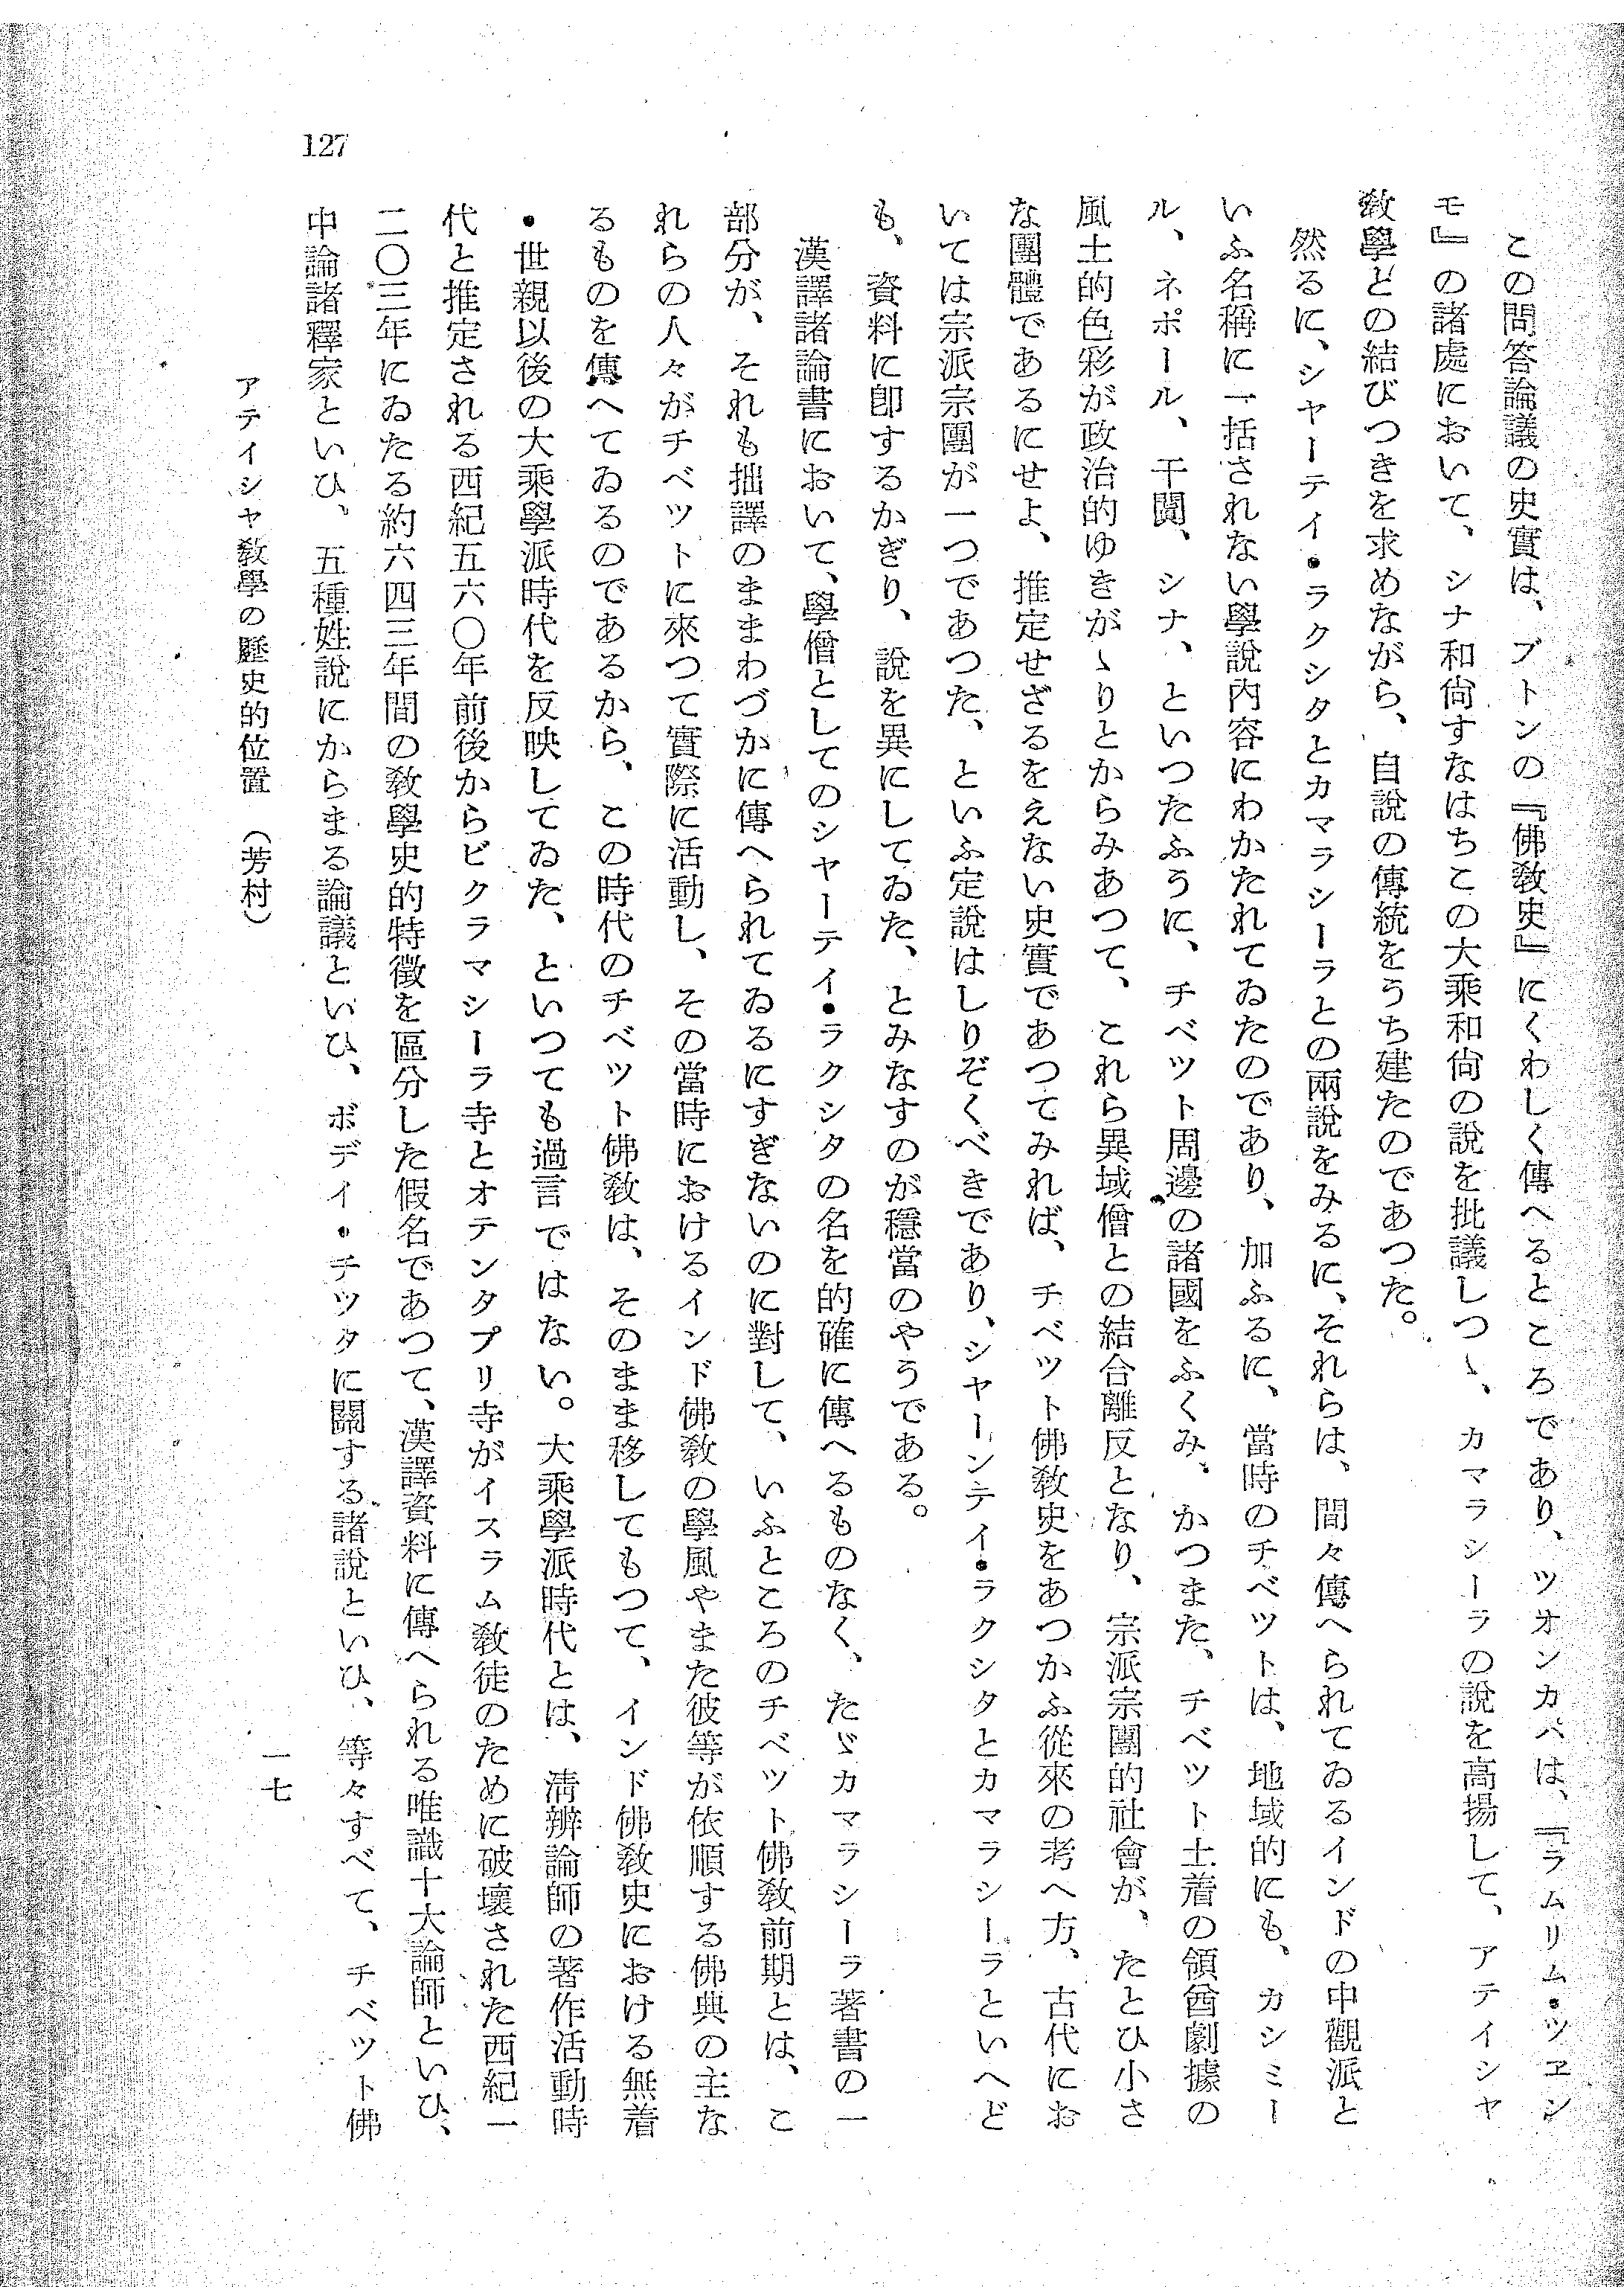 この問答論議の史實は、ブトンの『佛敎史』にくわしく傳へるところであり、ツオンカパは、『ラムリム・ツエン
モ』の諸處において、シナ和尙すなはちこの大乘和尙の說を批議しつゝ、カマラシーラの說を高揚して、アテイシヤ
敎學との結びつきを求めながら、自說の傳統をうち建たのであつた。
然るに、シヤーテイ・ラクシタとカマラシーラとの兩說をみるに、それらは、間々傳へられてゐるインドの中觀派と
いふ名稱に一括されない學說內容にわかたれてゐたのであり、加ふるに、當時のチベツトは、地域的にも、カシミー
ル、ネポール、干闐、シナ、といつたふうに、チベツト周邊の諸國をふくみ、かつまた、チベツト土着の領酋劇據の
風土的色彩が政治的ゆきがゝりとからみあつて、これら異域僧との結合離反となり、宗派宗團的社會が、たとひ小さ
な團體であるにせよ、推定せざるをえない史實であつてみれば、チベツト佛敎史をあつかふ從來の考へ方、古代にお
いては宗派宗團が一つであつた、といふ定說はしりぞくべきであり、シヤーンテイ・ラクシタとカマラシーラといへど
も、資料に卽するかぎり、說を異にしてゐた、とみなすのが穩當のやうである。
漢譯諸論書において、學僧としてのシヤーテイ・ラクシタの名を的確に傳へるものなく、たゞカマラシーラ著書の一
部分が、それも拙譯のままわづかに傳へられてゐるにすぎないのに對して、いふところのチベツト佛敎前期とは、こ
れらの人々がチベツトに來つて實際に活動し、その當時におけるインド佛敎の學風やまた彼等が依順する佛典の主な
るものを傳へてゐるのであるから、この時代のチベツト佛敎は、そのまま移してもつて、インド佛敎史における無着
・世親以後の大乘學派時代を反映してゐた、といつても過言ではない。大乘學派時代とは、淸辨論師の著作活動時
代と推定される西紀五六〇年前後からビクラマシーラ寺とオテンタプリ寺がイスラム敎徒のために破壞された西紀一
二〇三年にゐたる約六四三年間の敎學史的特徵を區分した假名であつて、漢譯資料に傳へられる唯識十大論師といひ、
中論諸釋家といひ、五種姓說にからまる論議といひ、ボデイ・チツタに關する諸說といひ、等々すべて、チベツト佛
アテイシヤ敎學の歷史的位置　（芳村）
一七
127